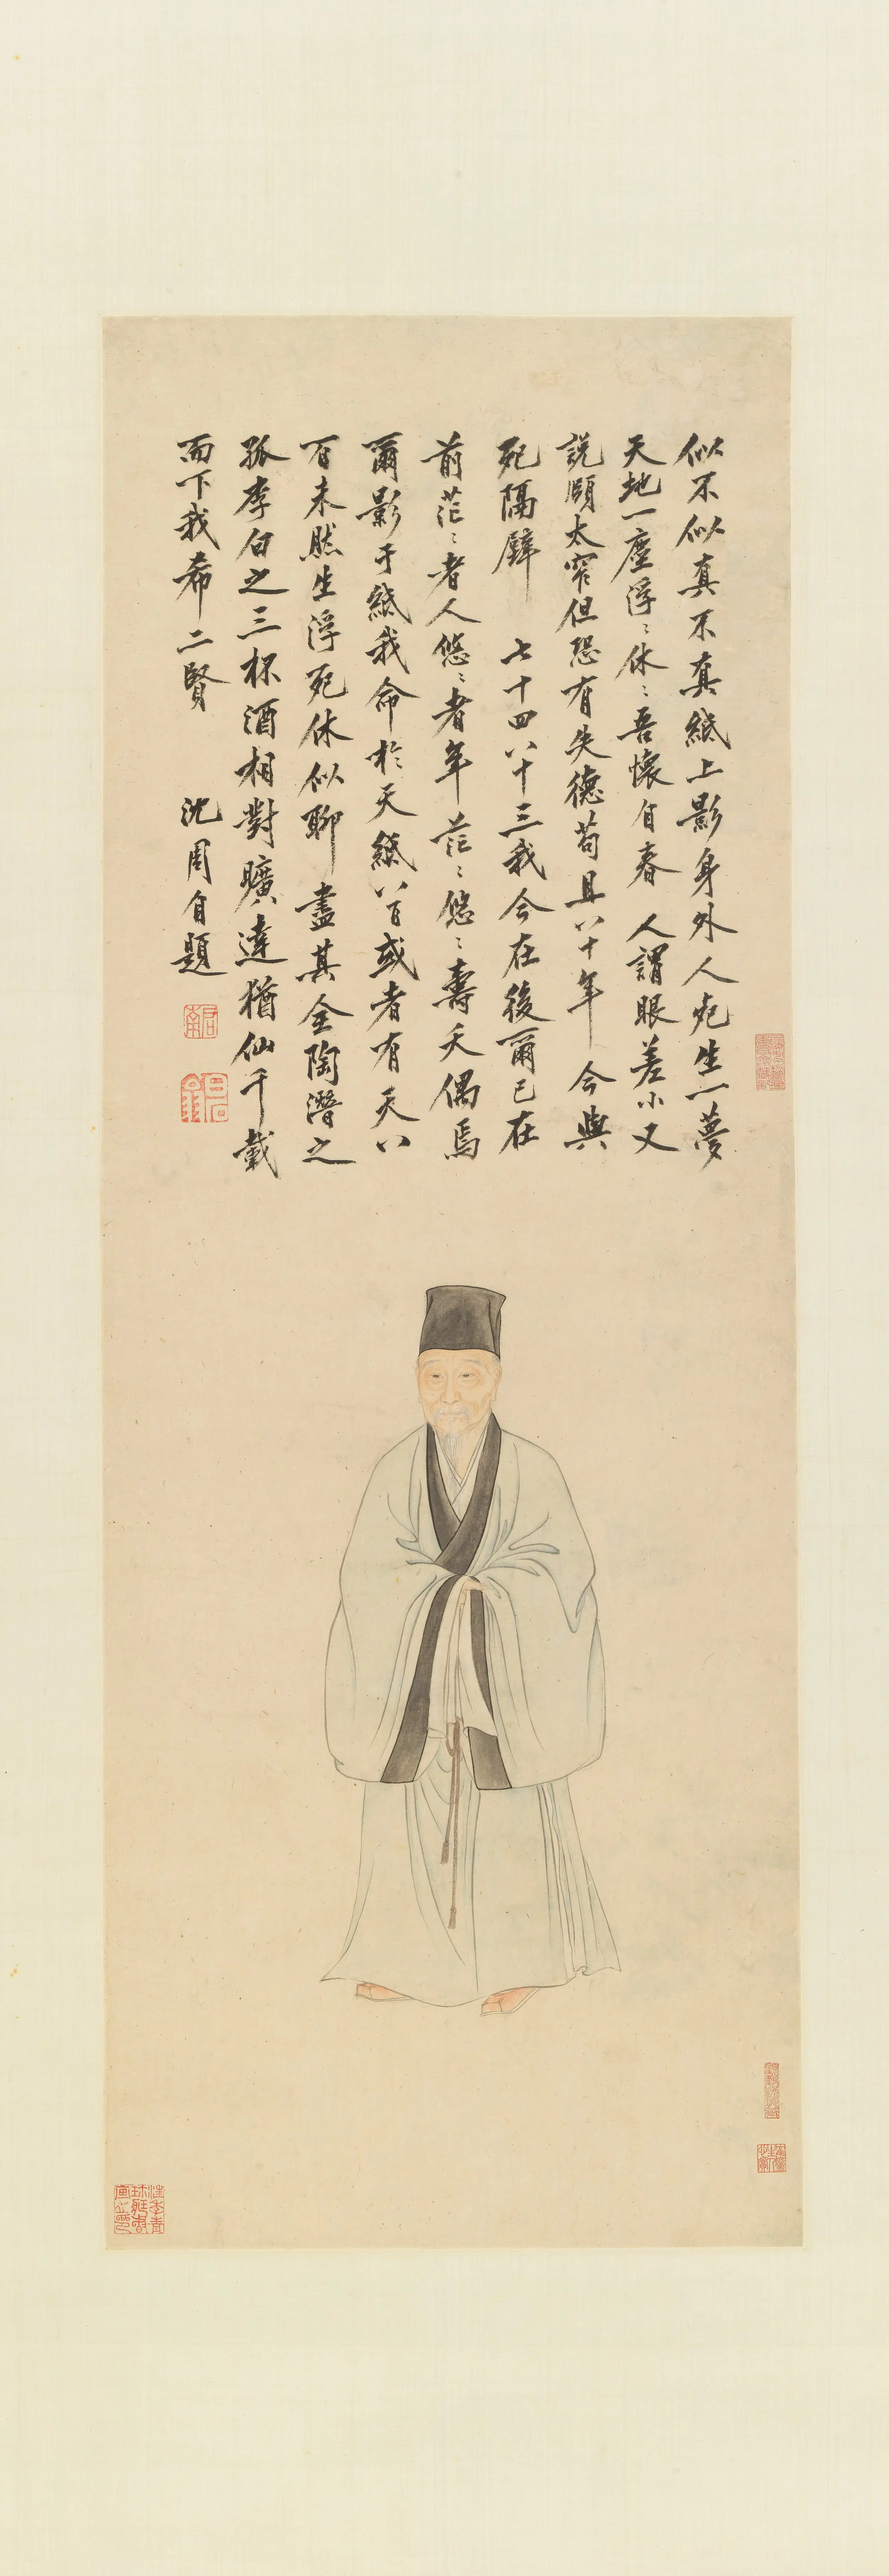 似不似真不真紙上影身外人死生一夢
天地一塵浮〻休〻吾懷自春 人謂眼差小又
說頤太窄但恐有失德苟且八十年 今與
死隔壁 七十四八十三我今在後爾已在
前茫〻者人悠〻者年茫〻悠〻壽夭偶焉
爾影于紙我命於天紙八百或者有天八
百未然生浮死休似聊盡其全陶潛之
孤李白之三杯酒相對曠達猶仙千載
而下我希二賢 沈周自題
啓南
白石翁
汪季青珍藏書畫之印